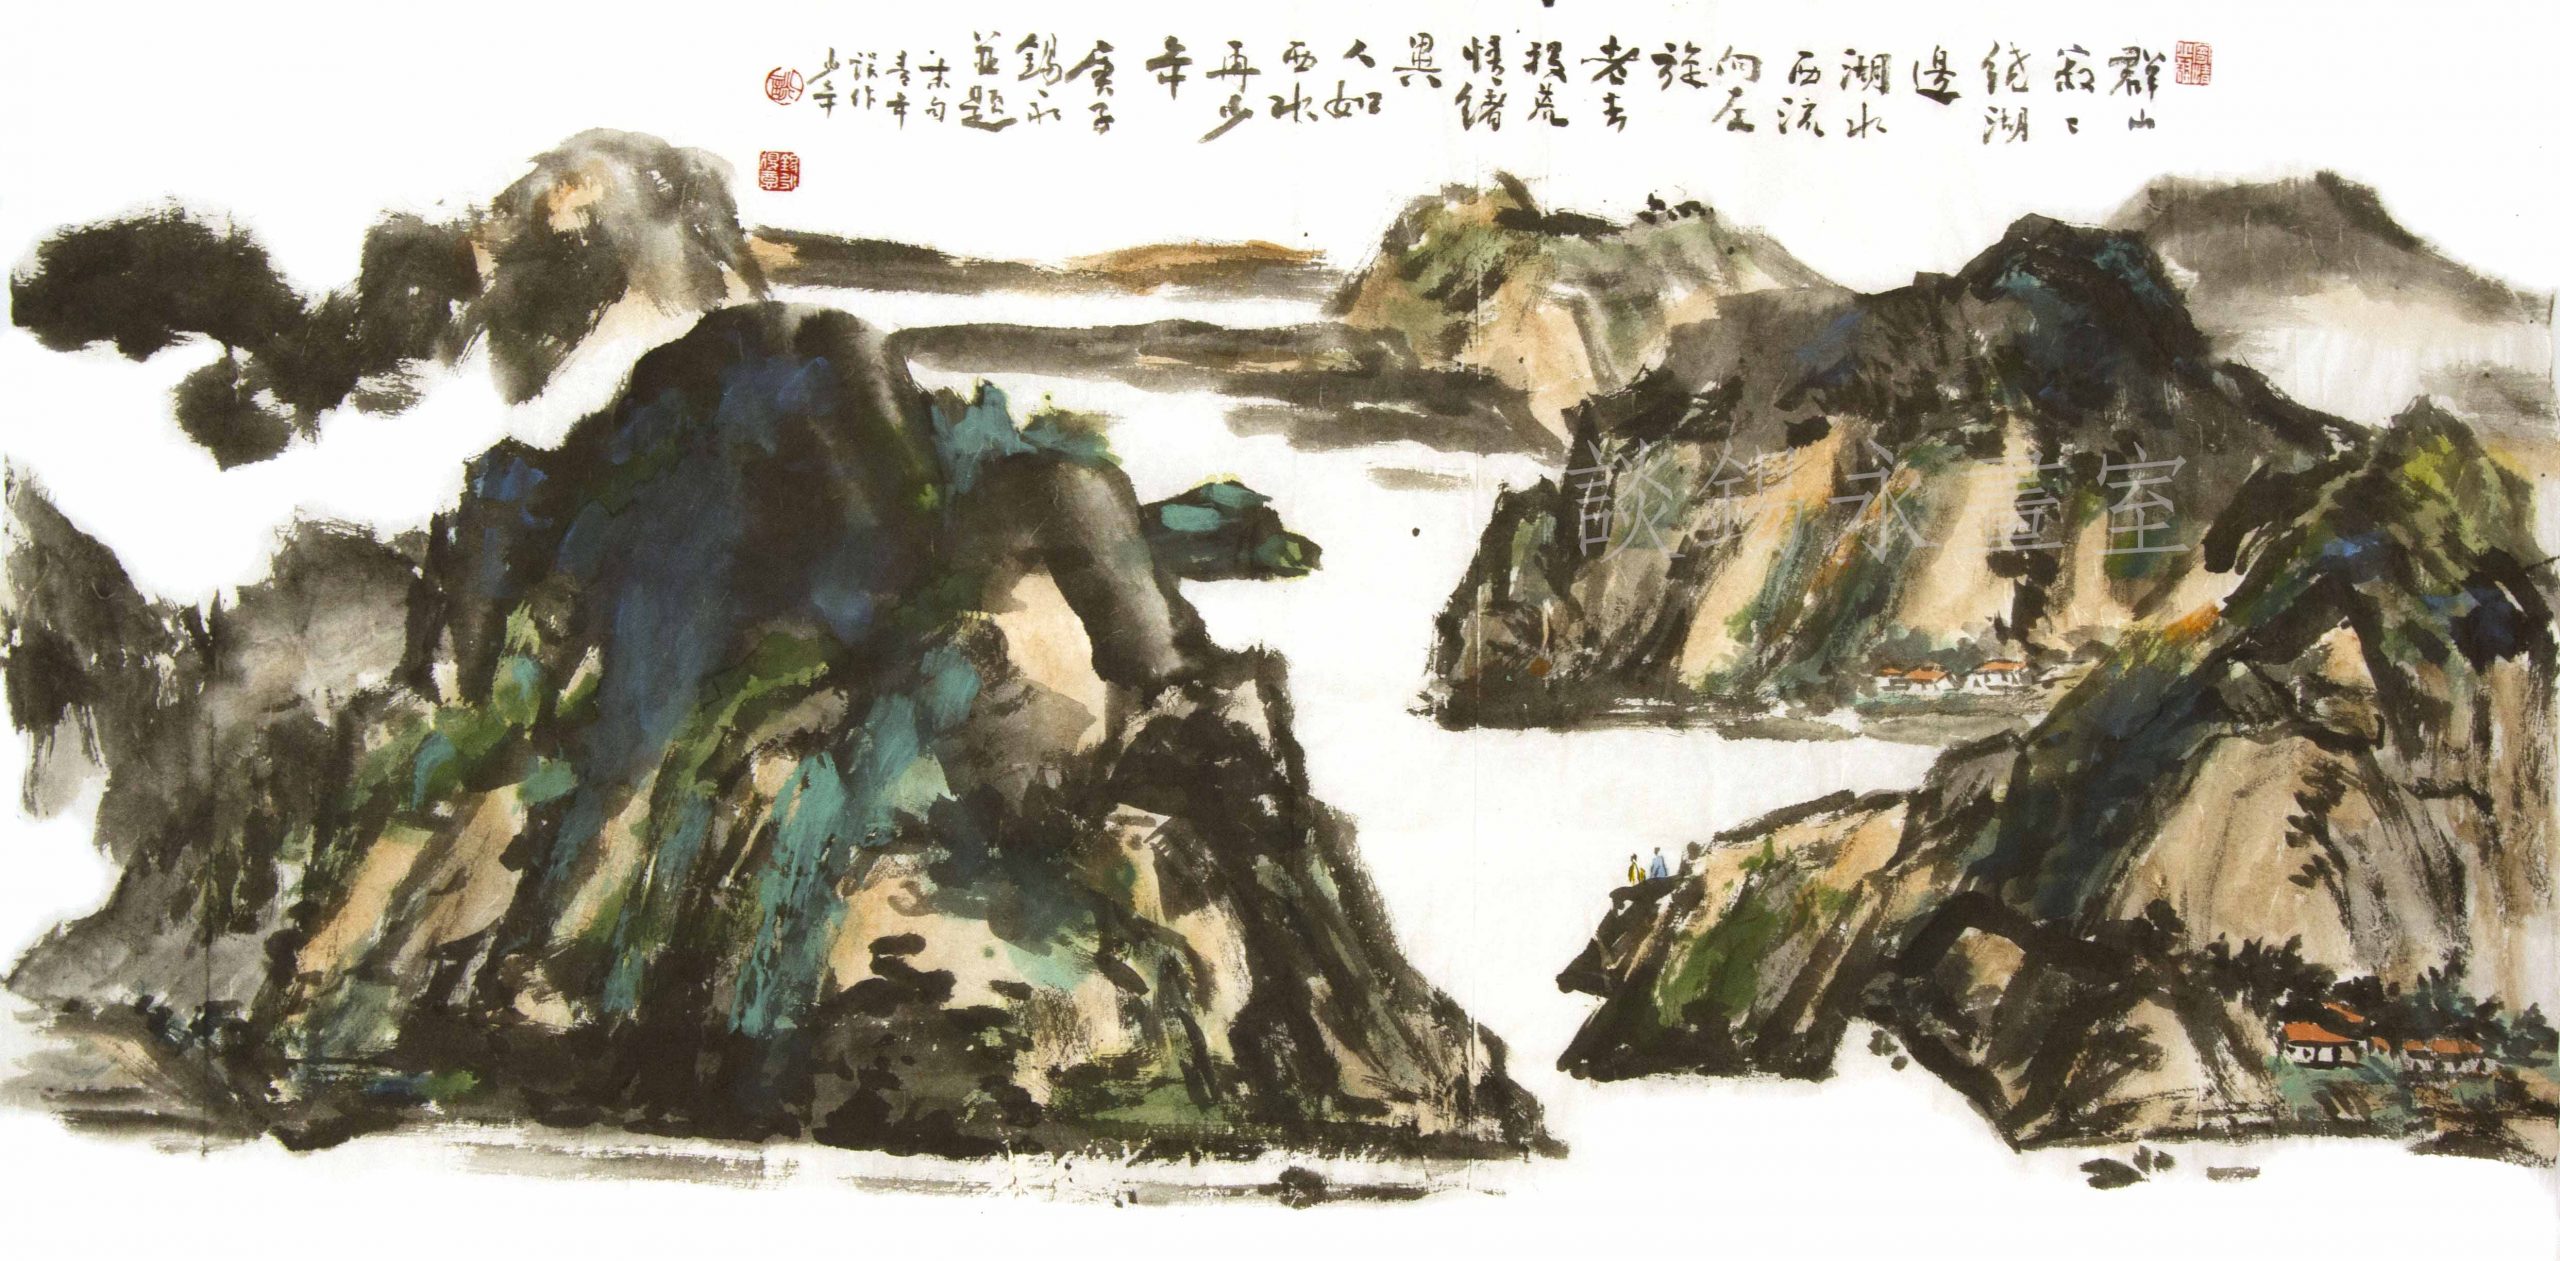 群山
寂〻
繞湖
邊
湖水
西流
向左
旋
老去
投荒
情緒
異
人如
西水
再少
年
庚子
錫永
並題
末句
青年
誤作
少年
談錫永畫室